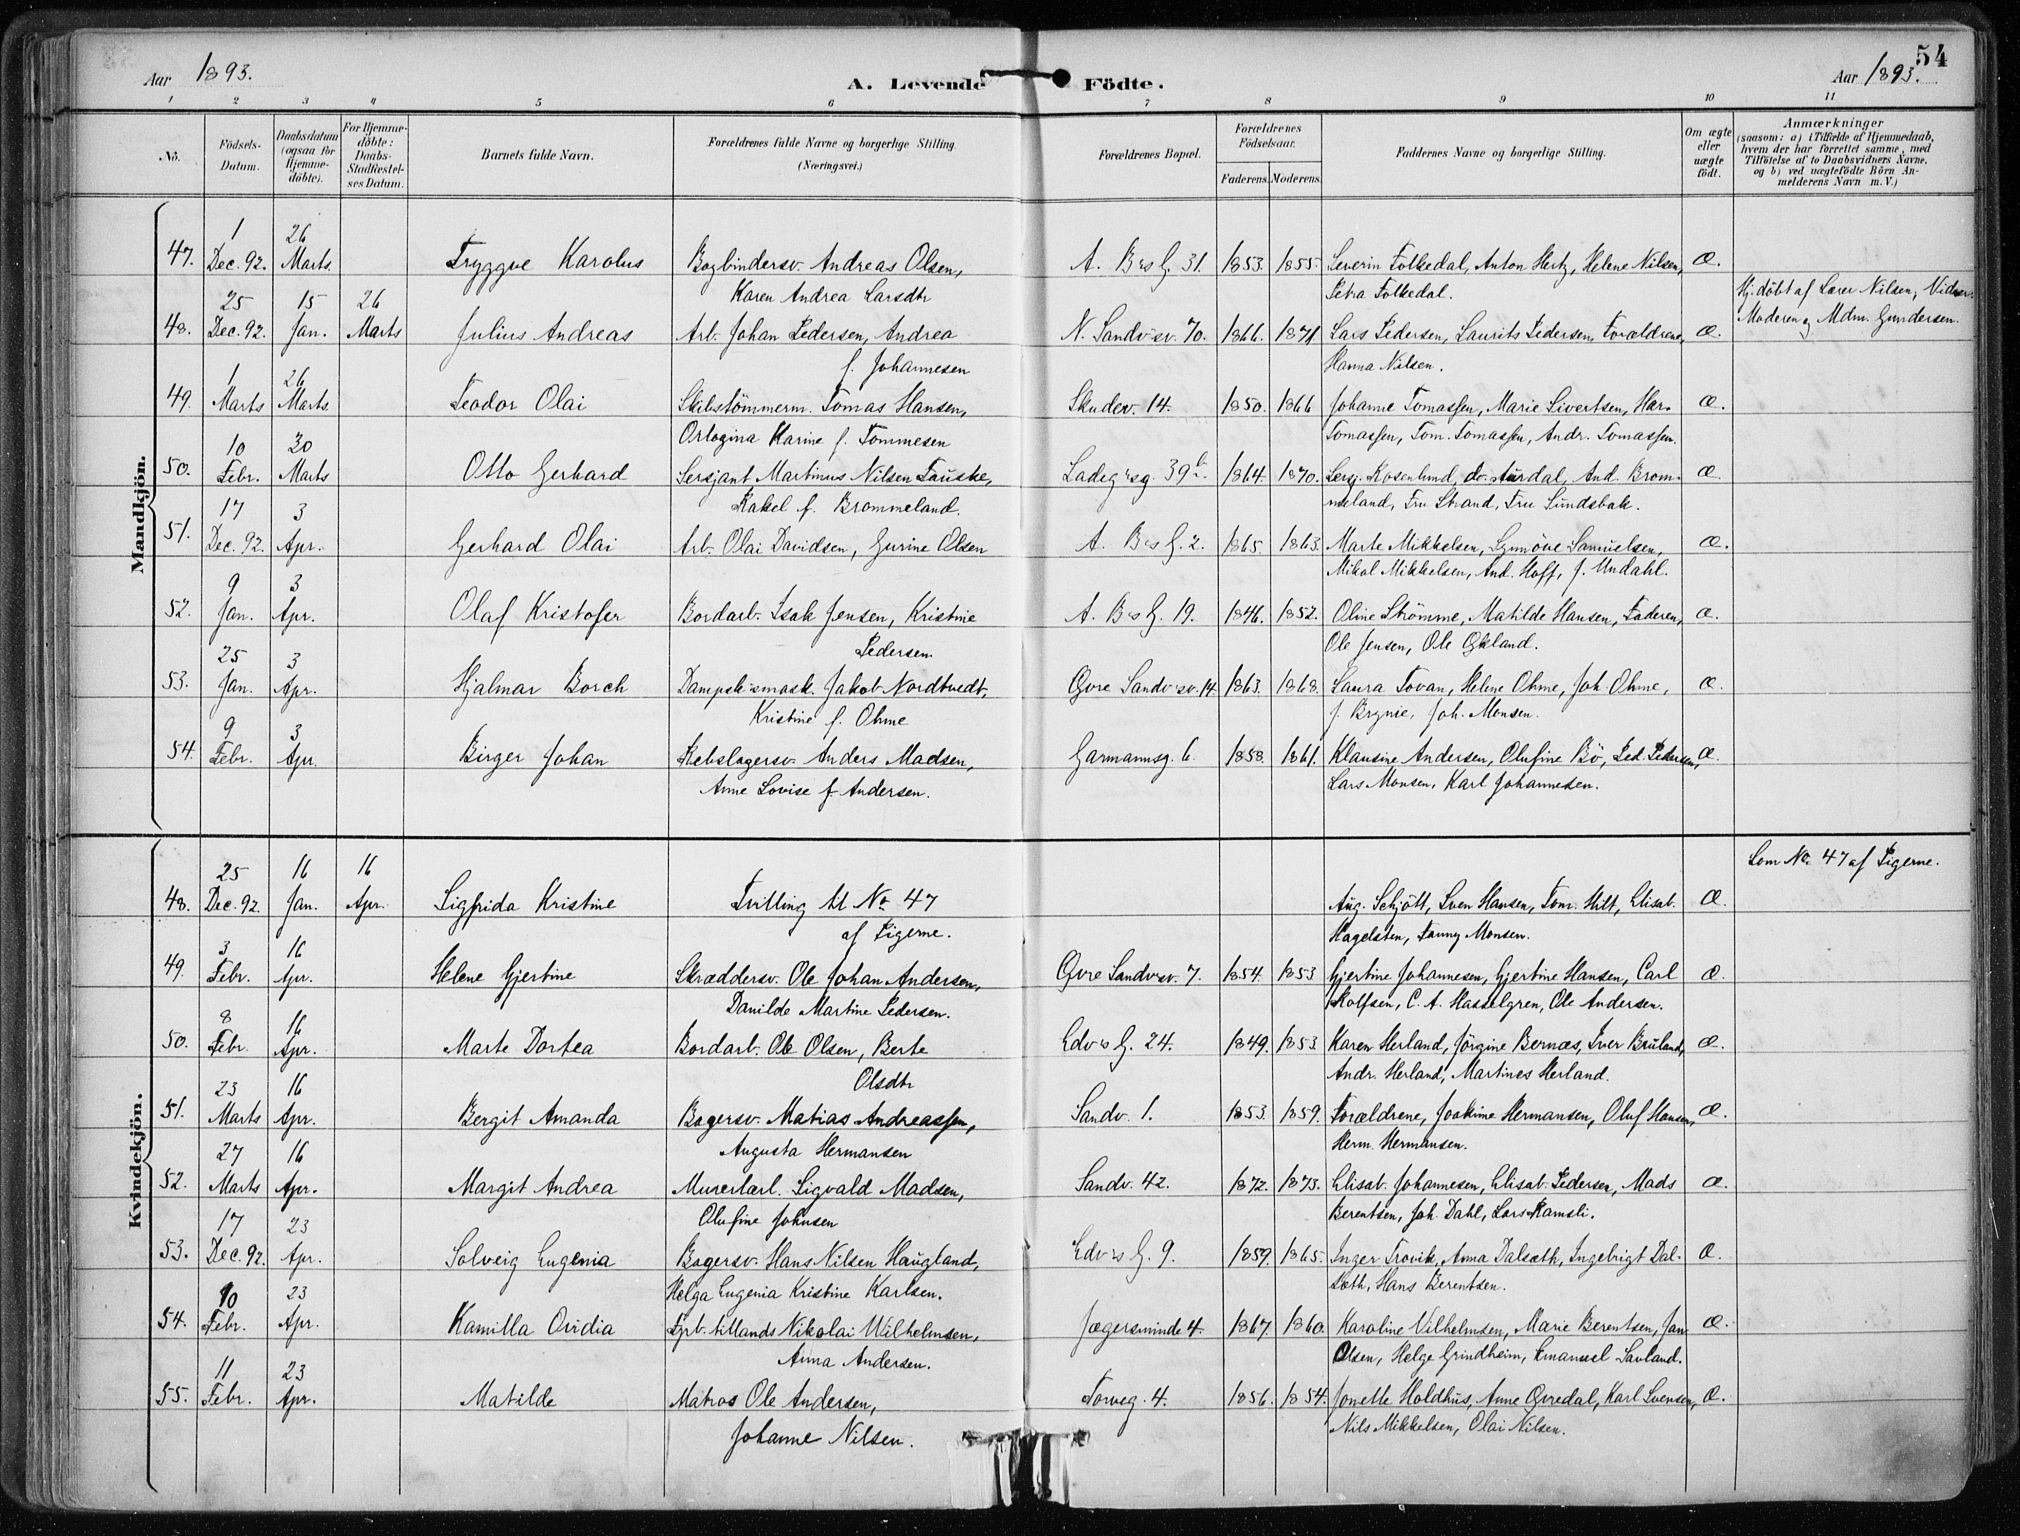 54
Aar 1893. A. Levende Födte. Aar 1893.
1 2 3 4 5 6 7 8 9 10 11
No. Födsels-Datum. Daabsdatum (ogsaa for Hjemme-döbte). For Hjemme-döbte: Daabs-Stadfæstel-ses Datum. Barnets fulde Navn. Forældrenes fulde Navne og borgerlige Stilling. (Næringsvei.) Forældrenes Bopæl. Forældrenes Födselsaar. Faderens. Moderens. Faddernes Navne og borgerlige Stilling. Om ægte eller uægte födt. Anmærkninger (saasom: a) i Tilfælde af Hjemmedaab, hvem der har forrettet samme, med Tilföielse af to Daabsvidners Navne, og b) ved uægtefödte Börn An-melderens Navn m. V.)
Mandkjön.
47. 1 Dec. 92. 26 Marts. Tryggve Karolus Bogbindersv. Andreas Olsen, A. B's G. 31. 1853. 1855. Severin Folkedal, Anton Hertz, Helene Nilsen, Æ.
Karen Andrea Larsdtr Petra Folkedal.
48. 25 Dec. 92. 15 Jan. 26 Marts Julius Andreas Arb. Johan Pedersen, Andrea N. Sandv'sv. 70. 1866. 1871. Lars Pedersen, Laurits Pedersen, Forældrene, Æ. Hj.döbt af Lærer Nilsen; Vidner
f. Johannesen Hanna Nilsen. Moderen og Mdm. Gundersen.
49. 1 Marts 26 Marts. Teodor Olai Skibstömmerm. Tomas Hansen, Skudev. 14. 1850. 1866 Johanne Tomassen, Marie Sivertsen, Har. Æ
Ortogina Karine f. Tommesen Tomassen, Tom. Tomassen, Andr. Tomassen.
50. 10 Febr. 30 Marts Otto Gerhard Sersjant Martinus Nilsen Fauske, Ladeg'sg. 39b. 1864. 1870. Sersj. Rosenlund, do. Aurdal, And. Brom- Æ
Rakel f. Brommeland. meland, Fru Strand, Fru Sundsbak.
51. 17 Dec. 92. 3 Apr. Gerhard Olai Arb. Olai Davidsen, Gurine Olsen A. B's G. 2. 1865. 1863. Marte Mikkelsen, Synnöve Samuelsen, Æ.
Mikal Mikkelsen, And. Hoff, J. Undahl.
52. 9 Jan. 3 Apr. Olaf Kristofer Bordarb. Isak Jensen, Kristine A. B's G. 19. 1846. 1852. Oline Strömme, Matilde Hansen, Faderen, Æ.
Pedersen. Ole Jensen, Ole Ökland.
53. 25 Jan. 3 Apr. Hjalmar Borch Dampsk'smask. Jakob Nordtvedt, Övre Sandv'sv. 14. 1863. 1868. Laura Tovan, Helene Ohme, Joh. Ohme, Æ
Kristine f. Ohme J. Brynie, Joh. Monsen.
54. 9 Febr. 3 Apr. Birger Johan Rebslagersv. Anders Madsen, Garmannsg. 6. 1858. 1861. Klausine Andersen, Olufine Bö, Ped. Pedersen, Æ.
Anne Lovise f. Andersen. Lars Monsen, Karl Johannesen.
Kvindekjön.
48. 25 Dec. 92. 16 Jan. 16 Apr. Sigfrida Kristine Tvilling til No 47 Aug. Schjött, Sven Hansen, Tom. Hilt, Elisab. Æ. Som No. 47 af Pigerne.
af Pigerne. Hagelsten, Fanny Monsen.
49. 3 Febr. 16 Apr. Helene Gjertine Skræddersv. Ole Johan Andersen, Övre Sandv'sv. 7. 1854. 1853 Gjertine Johannesen, Gjertine Hansen, Carl Æ.
Danilde Martine Pedersen. Rolfsen, C. A. Hasselgren, Ole Andersen.
50. 8 Febr. 16 Apr. Marte Dortea Bordarb. Ole Olsen, Berte Edv's G. 24. 1849. 1853. Karen Herland, Jörgine Bernæs, Iver Bruland, Æ.
Olsdtr Andr. Herland, Martines Herland.
51. 23 Marts 16 Apr. Bergit Amanda Bagersv. Matias Andreassen, Sandv. 1. 1853. 1859. Forældrene, Joakime Hermansen, Oluf Hansen, Æ.
Augusta Hermansen Herm. Hermansen.
52. 27 Marts 16 Apr. Margit Andrea Murerlærl. Sigvald Madsen, Sandv. 42. 1872. 1873. Elisab. Johannesen, Elisab. Pedersen, Mads Æ.
Olufine Johnsen Berentsen, Joh. Dahl, Lars Ramsli.
53. 17 Dec. 92. 23 Apr. Solveig Eugenia Bagersv. Hans Nilsen Haugland, Edv's G. 9. 1859. 1865. Inger Trovik, Anna Dalsæth, Ingebrigt Dal- Æ.
Helga Eugenia Kristine Karlsen. sæth, Hans Berentsen.
54. 10 Febr. 23 Apr. Kamilla Ovidia Fyrb. tillands Nikolai Wilhelmsen, Jægersminde 4. 1867. 1860. Karoline Vilhelmsen, Marie Berentsen, Jan Æ.
Anna Andersen. Olsen, Helge Grindheim, Emanuel Sauland.
55. 11 Febr. 23 Apr. Matilde Matros Ole Andersen, Torveg. 4. 1856. 1854. Jonette Holdhus, Anne Övredal, Karl Svensen, Æ.
Johanne Nilsen. Nils Mikkelsen, Olai Nilsen.